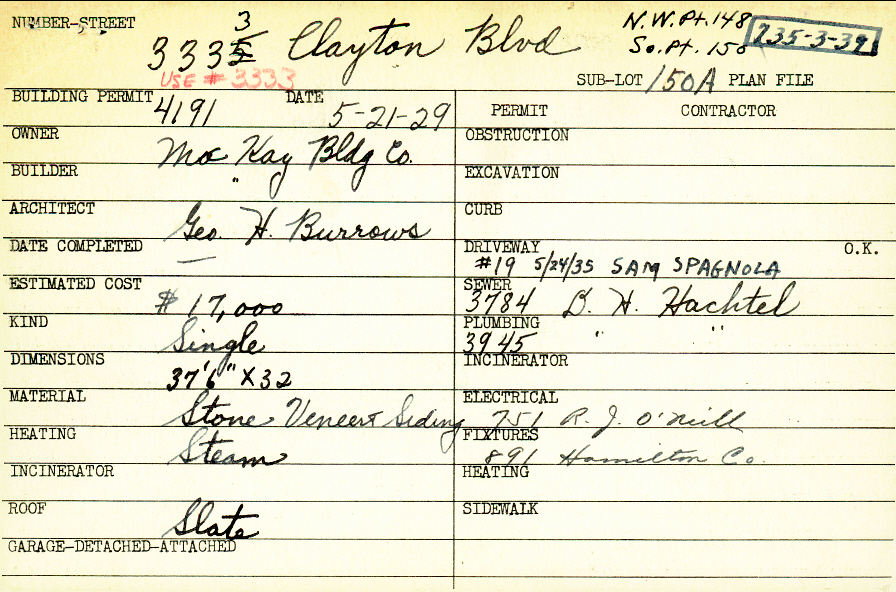 NUMBER-STREET 3335 3 Clayton Blvd
N.W.Pt.148
So.Pt.150
735-3-39
USE # 3333
SUB-LOT 150A PLAN FILE
BUILDING PERMIT 4191 DATE 5-21-29
PERMIT CONTRACTOR
OWNER Mac Kay Bldg Co.
OBSTRUCTION
BUILDER "
EXCAVATION
ARCHITECT Geo. H. Burrows
CURB
DATE COMPLETED —
DRIVEWAY O.K.
#19 5/24/35 SAM SPAGNOLA
ESTIMATED COST $17,000
SEWER
3784 B. H. Hachtel
KIND Single
PLUMBING
3945 " "
DIMENSIONS 37'6" X 32
INCINERATOR
MATERIAL Stone Veneer & Siding
ELECTRICAL
751 R. J. O'Neill
HEATING Steam
FIXTURES
891 Hamilton Co.
INCINERATOR
HEATING
ROOF Slate
SIDEWALK
GARAGE-DETACHED-ATTACHED